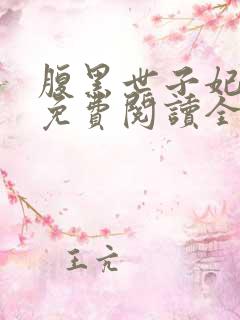 腹黑世子妃
免費閱讀全
王亢